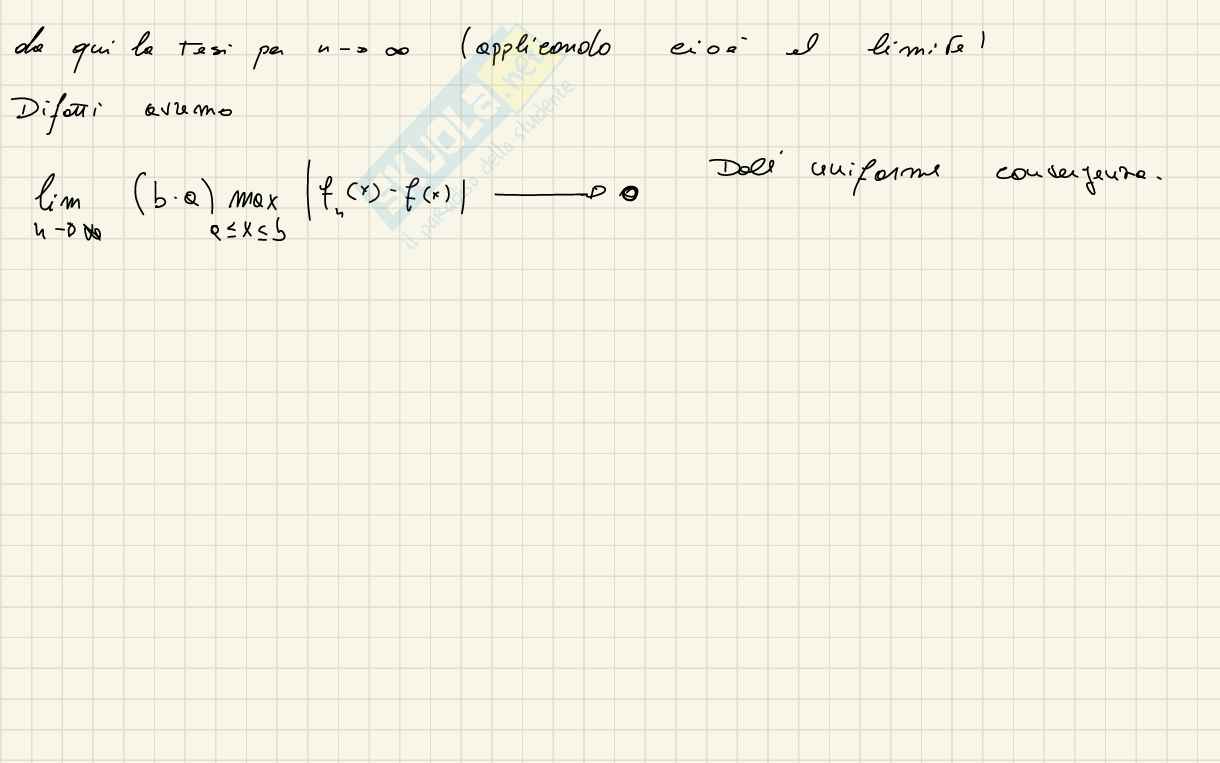 da qui la tesi per n → ∞ (applicando cioè il limite)
Difatti avremo
lim (b-a) max |fₙ(x) - f(x)| ⟶ 0 Dall' uniforme convergenza.
n→∞ a≤x≤b
SKUOLA.net
il paradiso dello studente